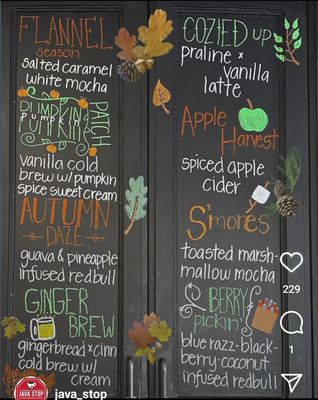 FLANNEL
season
salted caramel
white mocha
PUMPKIN
PUMPKIN
PATCH
vanilla cold
brew w/ pumpkin
spice sweet cream
AUTUMN
DAZE
guava & pineapple
infused redbull
GINGER
BREW
gingerbread x cinn
cold brew w/
cream
COZIED up
praline x
vanilla
latte
Apple
Harvest
spiced apple
cider
S'mores
toasted marsh-
mallow mocha
BERRY
pickin'
blue razz-black-
berry-coconut-
infused redbull
229
1
JAVA STOP
java_stop